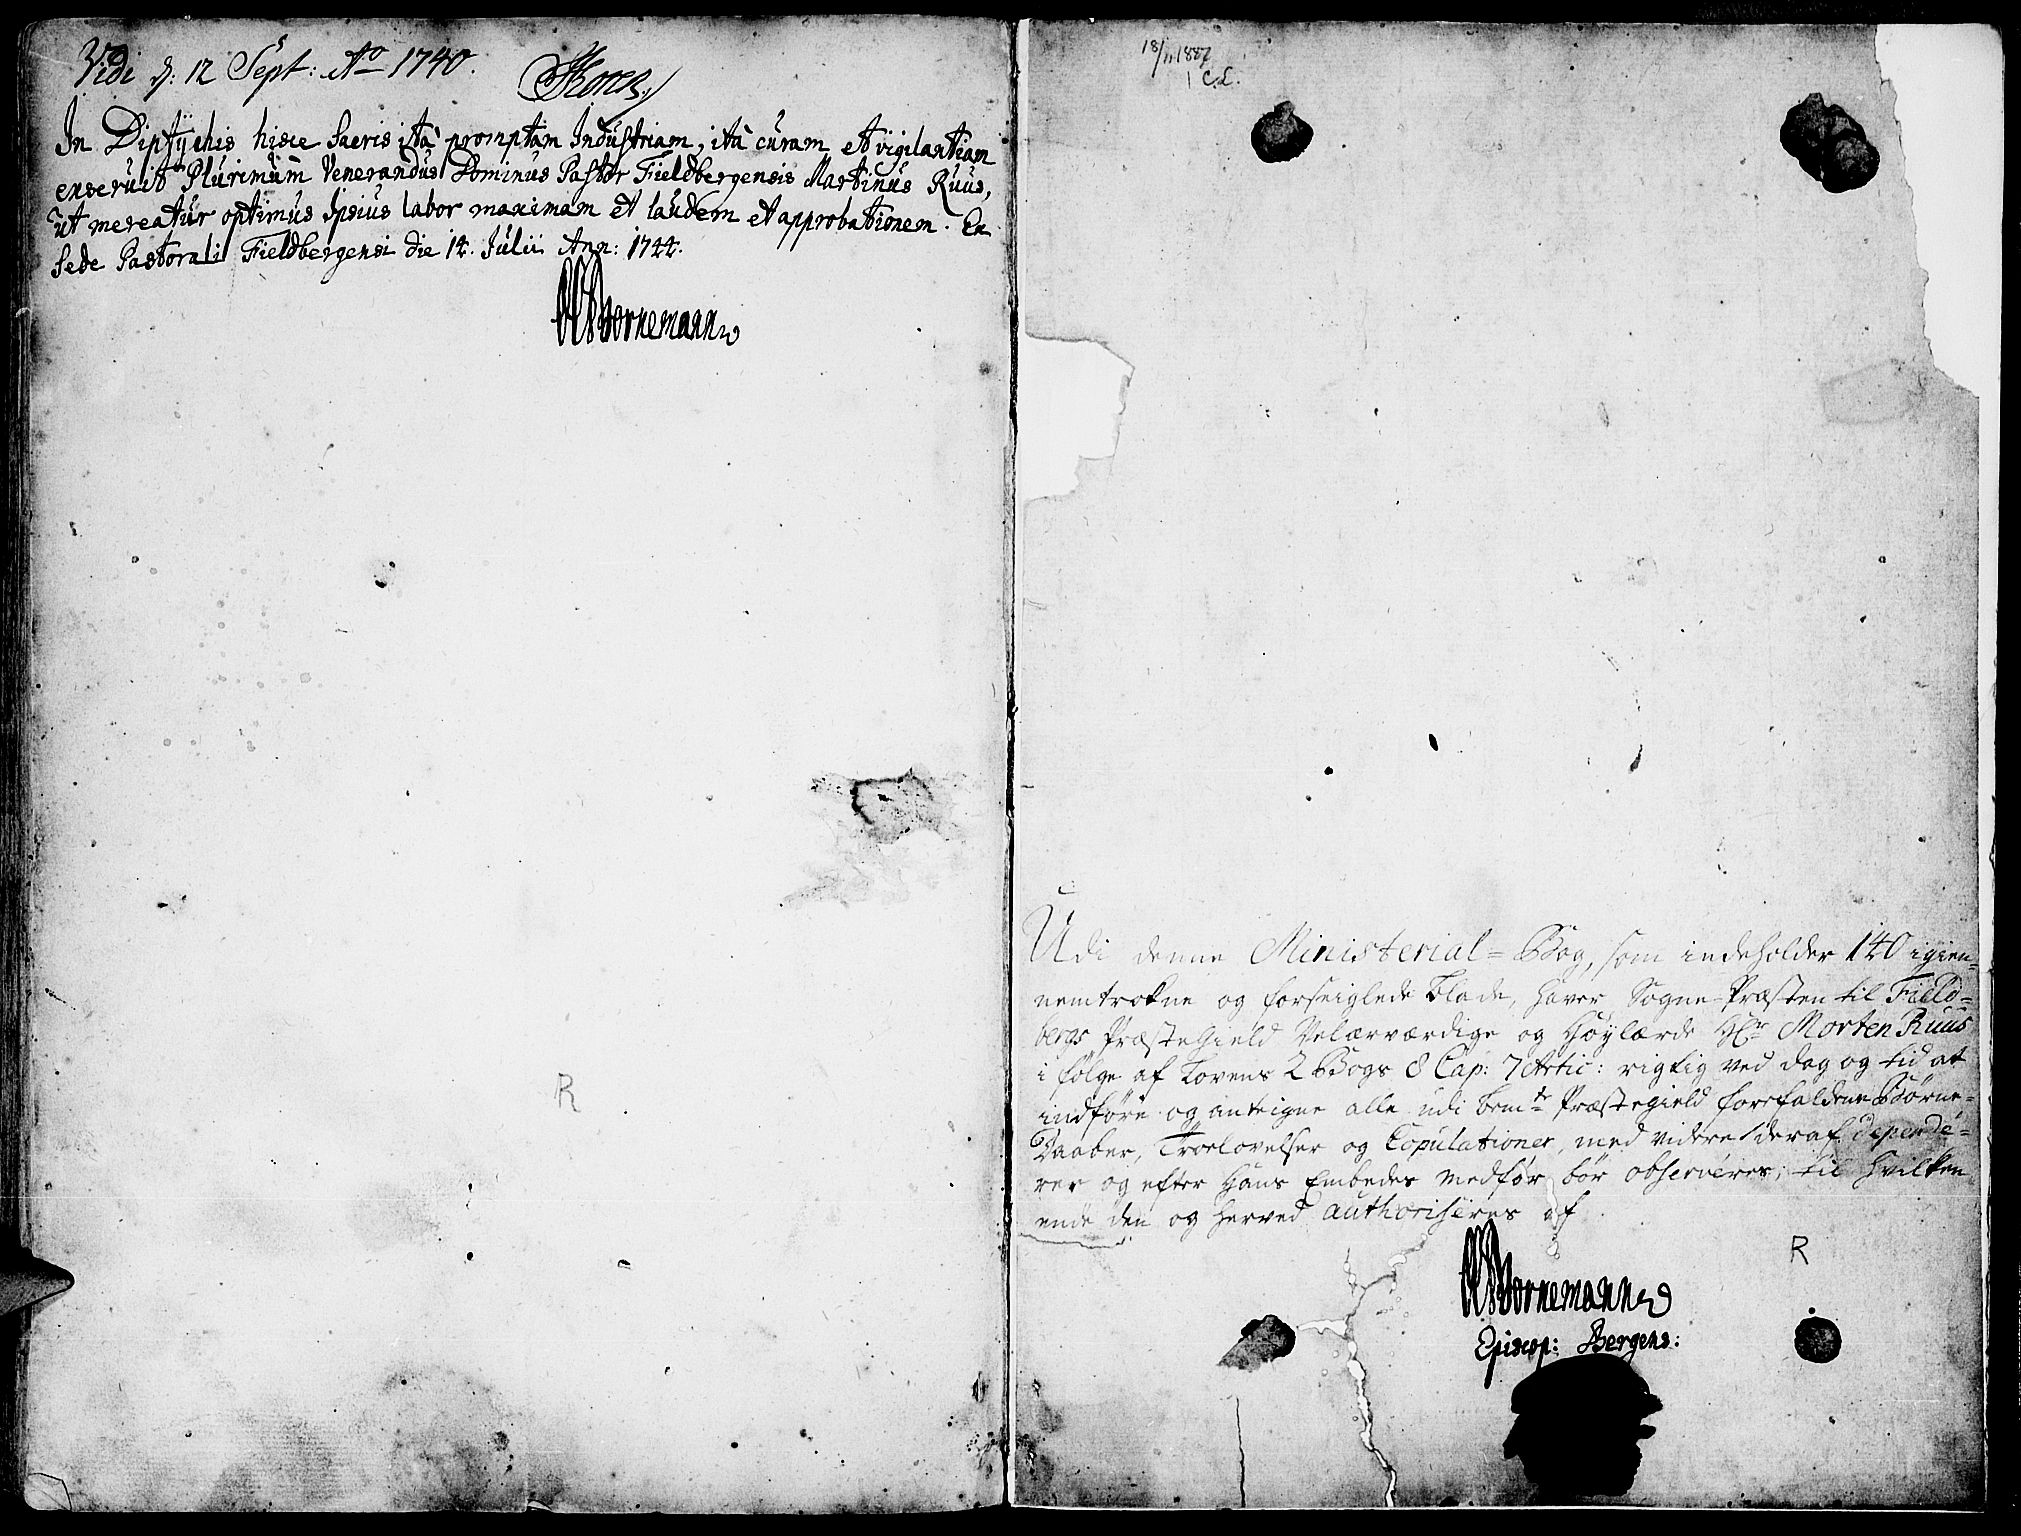 Vidi d: 12 Sept: Ao 1740.
In Diptychis hisce Sacris ità promptam Industriam, ità curam et vigilantiam
exseruit Plurimùm Venerandus Dominus Pastor Fieldbergensis Martinus Ruus,
ut mereatur optimus Ipsius labor maximam et laudem et approbationem. Ex
Sede Pastorali Fieldbergensi die 14. Julii Ann: 1744.
Bornemann
R
18/11 1887
1 C.L.
Udi denne Ministerial=Bog, som indeholder 140 igien=
nemtrokne og forseiglede blade, haver Sogne-Præsten til Field=
bergs Præstegield Velærværdige og Høylærde Hr Morten Ruus
i følge af Lovens 2 Bogs 8 Cap: 7 Artic: rigtig ved dag og tid at
indføre og anteigne alle udi bemte Præstegield forefaldene Børne=
Daaber, Troelovelser og Copulationer, med videre deraf depende=
rer og efter Hans Embedes medfør bør observeres; til hvilken
ende den og herved authoriseres af
Bornemann
R
Episcop: Bergens: